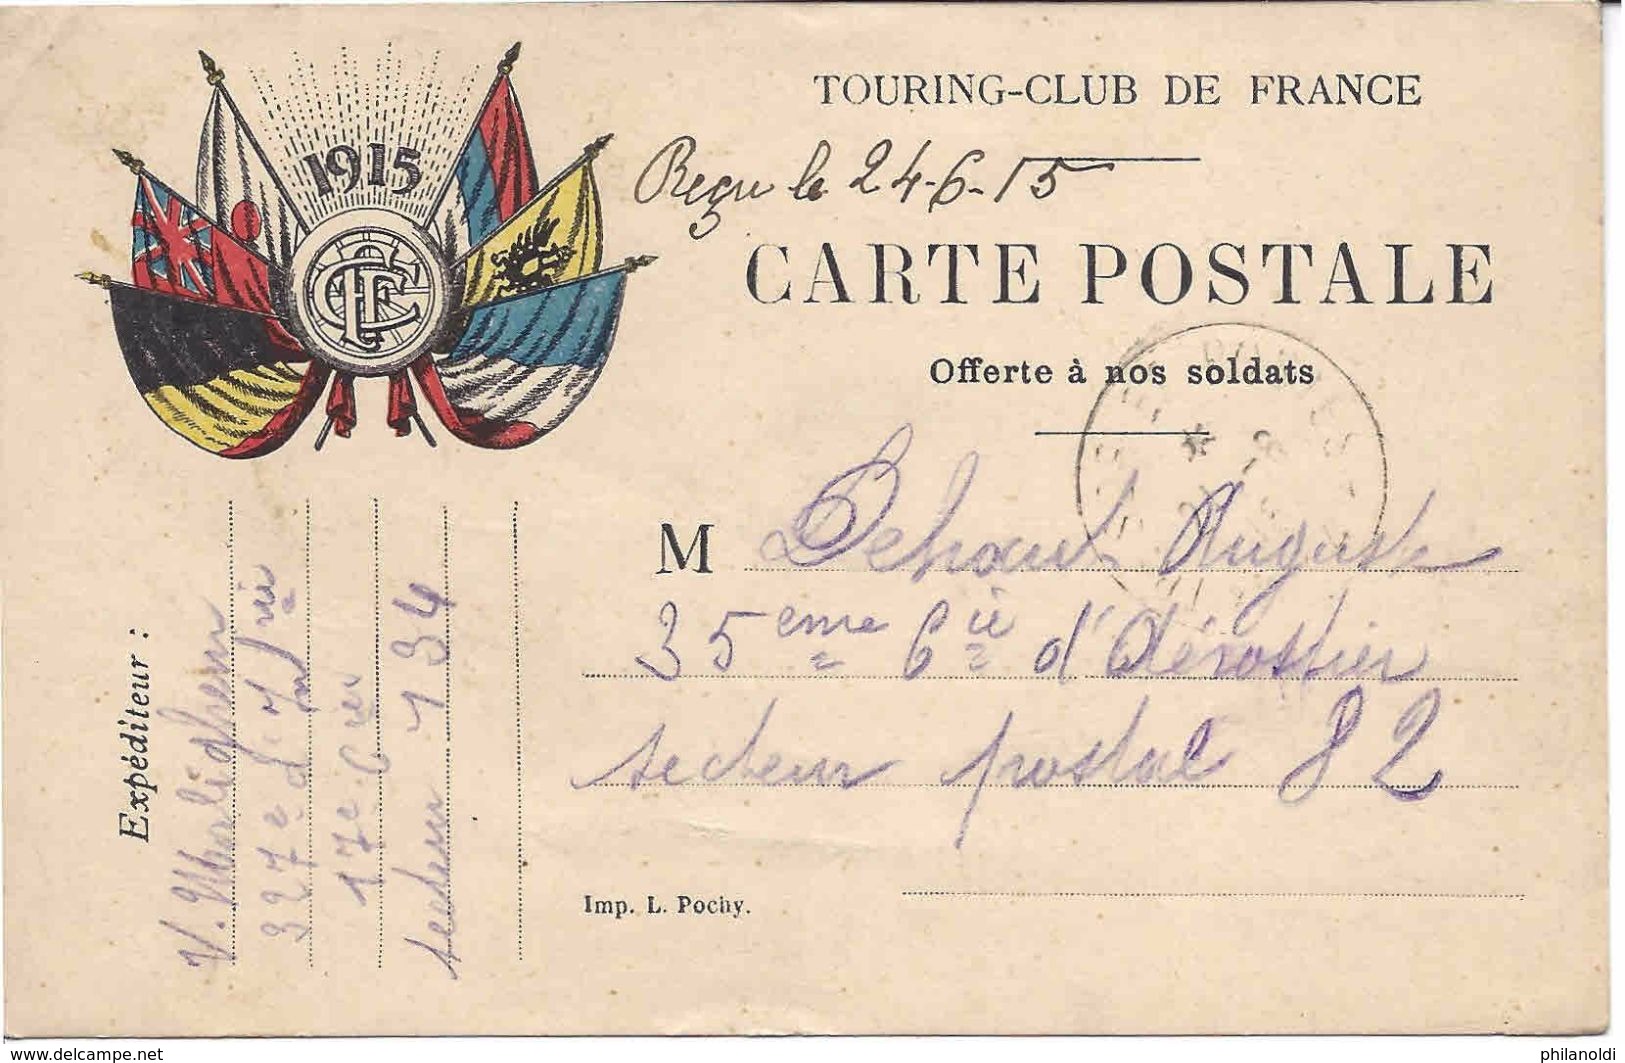 TOURING-CLUB DE FRANCE
1915
Reçu le 24-6-15
CARTE POSTALE
TCF
Offerte à nos soldats
M Dehoux Auguste
35eme Cie d'Aérostier
secteur postal 82
Expéditeur :
V.
327e d'Infrie
17e Cie
secteur 134
Imp. L. Pochy.
www.delcampe.net
philanoldi